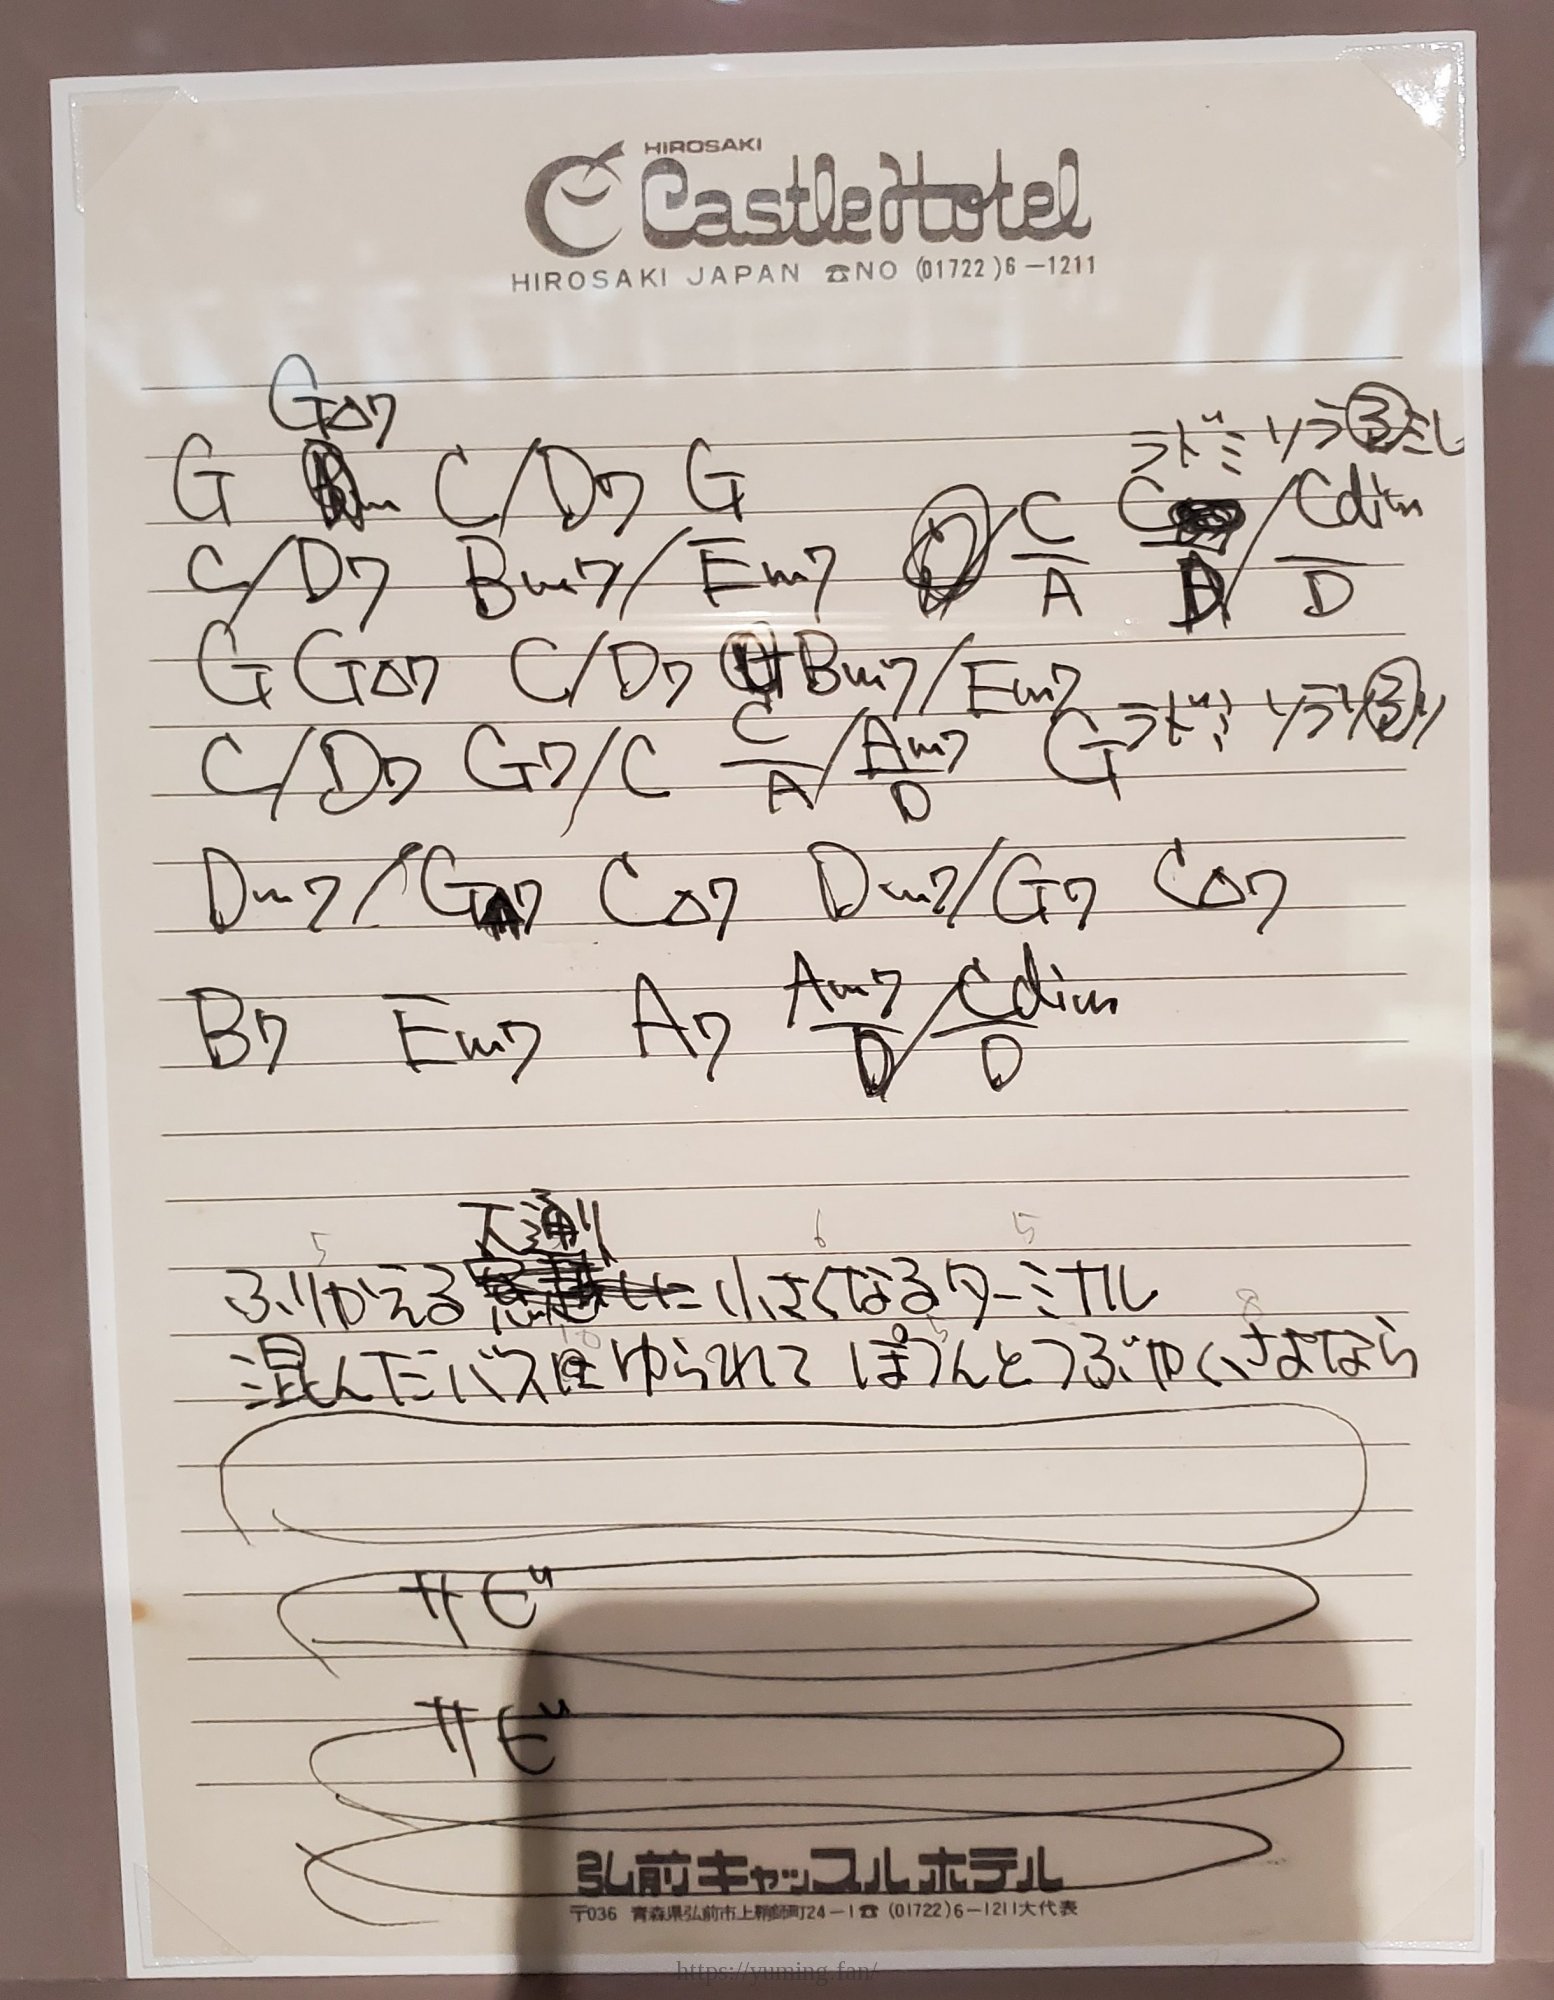 HIROSAKI
Castle Hotel
HIROSAKI JAPAN ☎NO (01722)6-1211
G△7
ラドミソラ③ミレ
G C/D7 G
C/D7 Bm7/Em7 C/A C/Cdim/D
G G△7 C/D7 Bm7/Em7
ラドミソラソ③
C/D7 G7/C C/A/Am7/D G
Dm7/G7 C△7 Dm7/G7 C△7
B7 Em7 A7 Am7/D/Cdim/D
5 大通り 6 5
ふりかえる 小さくなるターミナル
8
混んだバス ゆられて ぽつんとつぶやくさよなら
サビ
サビ
弘前キャッスルホテル
〒036 青森県弘前市上鞘師町24-1☎(01722)6-1211大代表
https://yuming.fan/